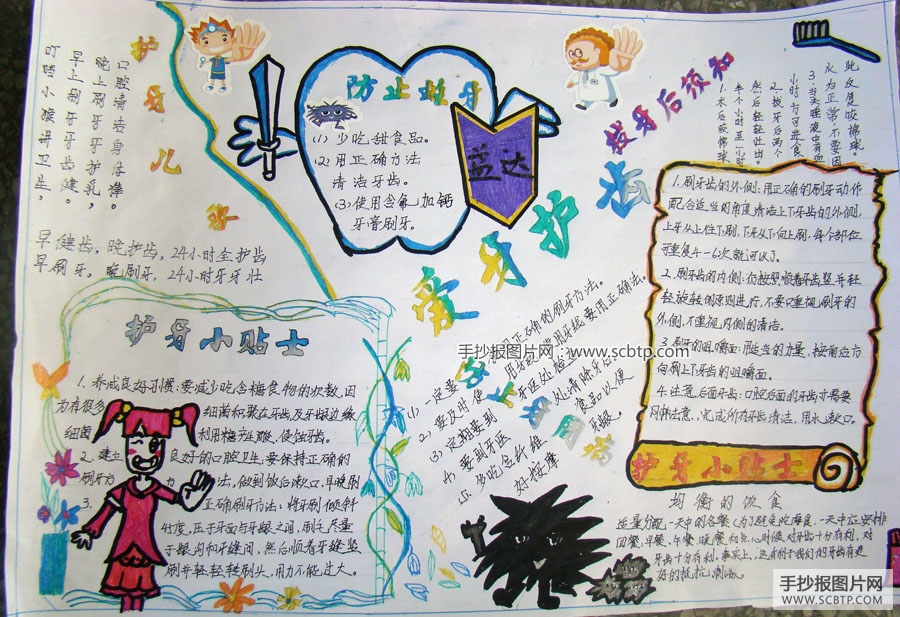 护牙儿歌
叮当小猴讲卫生，
早上刷牙牙齿健。
晚上刷牙牙护乳，
口腔清洁身体棒。
早健齿，晚护齿，24小时全护齿
早刷牙，晚刷牙，24小时牙牙壮
防止蛀牙
(1)少吃甜食品。
(2)用正确方法
清洁牙齿。
(3)使用含氟加钙
牙膏刷牙。
益达
拔牙后须知
1.术后咬棉球
半个小时至一小时
然后轻轻吐出。
2.拔牙后两个
小时方可进食
3.当天唾液中有血
水为正常不要因
此反复咬棉球。
爱牙护法
1.刷牙齿的外侧：用正确的刷牙动作
配合适当的角度清洁上下牙齿的外侧，
上牙从上往下刷，下牙从下向上刷，每个部位
可重复4-6次就可以了。
2.刷牙齿的内侧：仍按照顺着牙齿竖并轻
轻旋转的原则进行，不要只重视刷牙的
外侧，不重视内侧的清洁。
3.刷牙的咀嚼面：用适当的力量，按前后方
向刷上下牙齿的咀嚼面。
4.注意后面牙齿：口腔后面的牙齿亦需要
同样注意，完成所有牙齿清洁，用水漱口。
护牙小贴士
护牙小贴士
1.养成良好习惯：要减少吃含糖食物的次数，因
为有很多 细菌积聚在牙齿及牙龈边缘
细菌 利用糖产生酸，侵蚀牙齿。
2.建立 良好的口腔卫生：要保持正确的
刷牙方 法，做到饭后漱口，早晚刷
3. 正确刷牙方法：将牙刷倾斜
45度，压于牙面与牙龈之间，刷毛尽量
于龈沟和牙缝间，然后顺着牙缝竖
刷并轻轻转刷头，用力不能过大。
防止牙周病
(1)一定要 用正确的刷牙方法。
2)要及时使用牙线，使用牙线要用正确法。
3)定期要到牙医处检
4.要到牙医处清除牙
5.多吃些纤维食品以便
好按摩牙龈。
均衡的饮食
适量分配一天中的各餐（为了避免吃零食，一天中应安排
四餐，早餐、午餐、晚餐和点心时候对牙齿十分有利，对
牙齿十分有利，事实上，这有利于我们的牙齿有更
好的抵抗
手抄报图片网：www.scbtp.com
手抄报图片网
WWW.SCBTP.COM